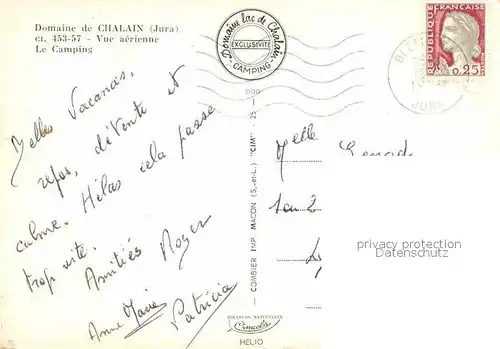 Domaine de CHALAIN (Jura)
Cl. 453-57 - Vue aérienne
Le Camping
Domaine lac de Chalain
EXCLUSIVITÉ
CAMPING
RÉPUBLIQUE FRANÇAISE
0,25
JURA
Belles Vacances,
repos, détente et
calme. Hélas cela passe
trop vite. Amitiés Roger
Anne Marie Patricia
COMBIER IMP. MACON (S.-et-L.) "CIM"
Melle
privacy protection
AKPool.de
COULEURS NATURELLES
Cimcolor
HÉLIO